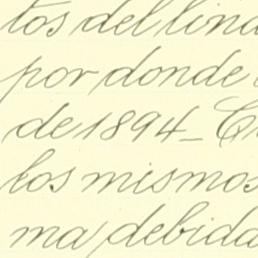 tos del lind
por donde
de 1894_ C
los mismos
ma debida